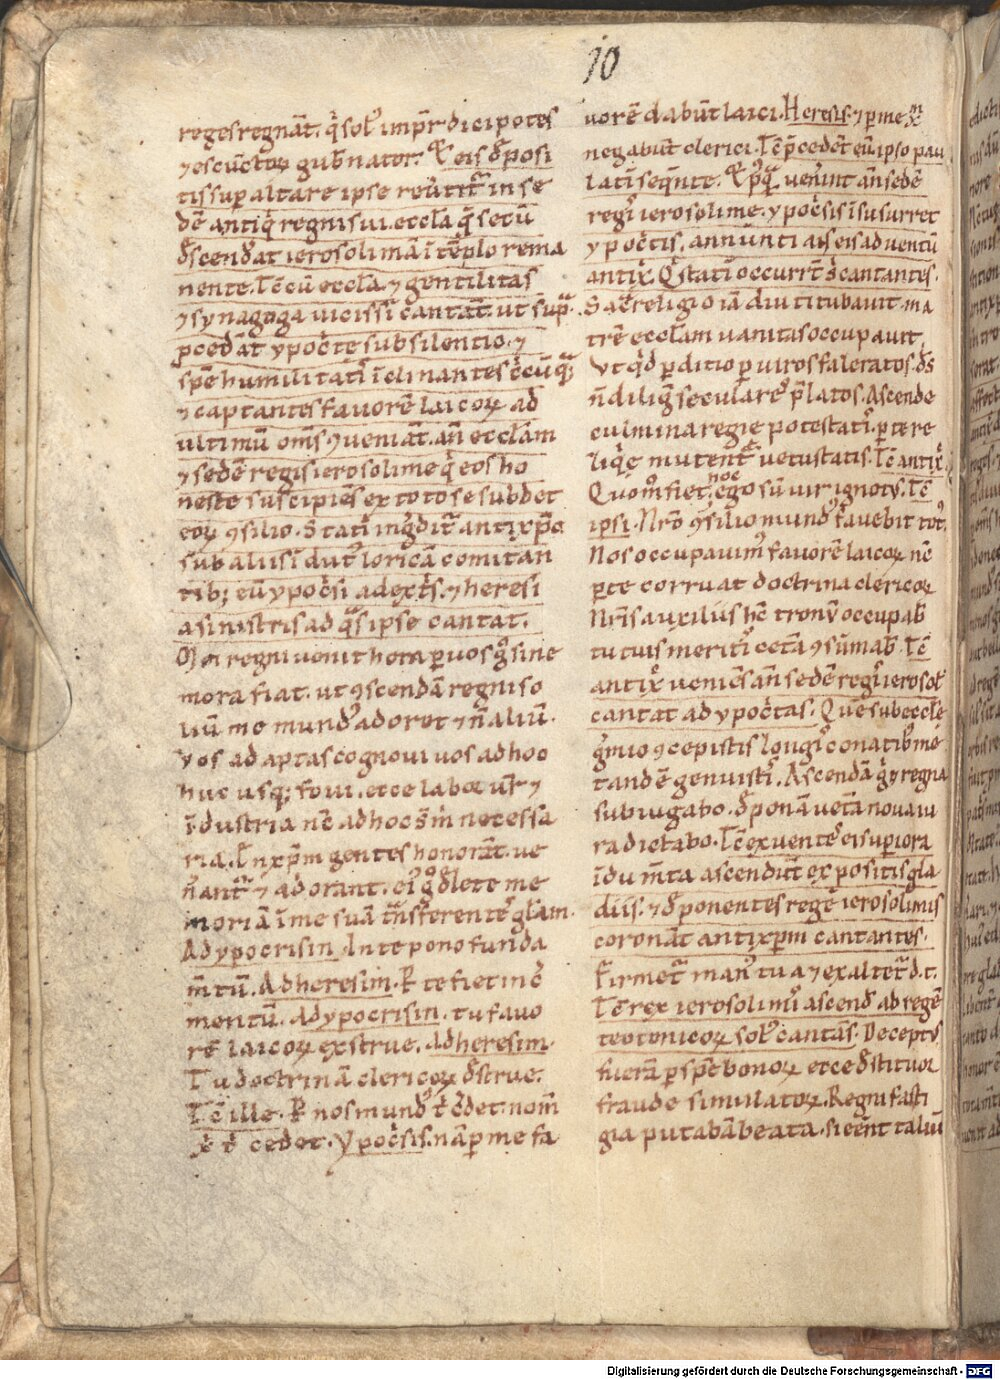 10
reges regnāt. q̇ solꝰ impr̄ dici potes
⁊ escūctoꝝ gub̄nator. Et eis dposi
tis sup̱ altare ipse reūtit᷑ in se
dē antiq̇ regni sui. ecclā q̄ secū
dscendāt ierosolimā ī tēplo rema
nente. Tc̄ cū ecclā. ⁊ gentilitas
⁊ synagoga uicissī cantāt. ut sup̄ᵃ.
p̱cedāt ypoc̄te sub silentio. ⁊
spēe humilitatī īclinantes c̄cūq̄ꝫ
⁊ captantes fauorē laicoꝝ ad
ultimū om̄s ꝯueniāt. an̄ ecclam
⁊ sedē regis ierosolime q̇ eos ho
neste suscipiēs ex toto se subdet
eoꝝ ꝯsilio. Statī ing̊dit᷑ antixp̄c
sub aliis īdutꝰ loricā comitan
tib; eū ypoc̄si a dext̄s. ⁊ heresi
a sinistris ad q̄s ipse cantat.
Mei regni uenit hora p̱ uos g̊ sine
mora fiat. ut ꝯscendā regni so
liū. me mundꝰ adoret ⁊ n̄ aliū.
Vos ad aptas cognoui uos ad hoc
huc usq; foui. ecce labor ur̄ ⁊
īdustria nc̄ ad hoc s̄ m̄ necessa
ria. En xp̄m gentes honorāt. ue
n̄ant᷑ ⁊ adorant. eiꝰ g̊ dlete me
moriā ī me suā tn̄sferentes gl̄am.
Ad ypocrisin. In te pono funda
m̄tū. Ad heresim. P̱ te fiet inc̄
mentū. Ad ypocrisin. tu fauo
rē laicoꝝ exstrue. Ad heresim.
Tu doctrinā clericoꝝ dstrue.
Tc̄ ille. P̱ nos mundꝰ t̄ c̄det. nom̄
x̄ t̄ cedet. Ypoc̄sis. nā p̱ me fa
uorē dabūt laici. Heresis. ⁊ p̱ me x̄
negabūt clerici. Tc̄ p̄cedēt eū ipso pau
latī seq̄nte. Et p̱q̄ uenīnt an̄ sedē
regī ierosolime. ypoc̄sis īsusurret
ypoc̄tis. annūntiās eis aduentū
antix̄. Q̇ statī occurrt̄ s̄ cantantes.
Sac̄ religio iā diu titubauit. ma
trē ecclam uanitas occupauit.
Vt q̇d p̱ditio p̱ uiros faleratos. ds̄
n̄ diliḡ seculares p̄latos. Ascende
culmina regie potestatī. p̱ te re
liq̇e mutent᷑ uetustatis. Tc̄ antix̄.
Quom̊ fiet hoc ego sū uir ignotꝰ. Tc̄
ipsi. Nr̄o ꝯsilio mundꝰ fauebit totꝰ.
Nos occupauimꝰ fauorē laicoꝝ nc̄
p̱ te corruat doctrina clericoꝝ
Nr̄is auxiliis hc̄ tronū occupab̄
tu tuis meritī cetā ꝯsūmab̄. Tc̄
antix̄ ueniēs an̄ sedē regī ierosoł
cantat ad ypoc̄tas. Quē sub eccłe
g̊mio ꝯcepistis longī conatibꝰ me
tandē genuistī. Ascendā g̊ ⁊ regna
subiugabo. dponā uet̄a noua iu
ra dictabo. Tc̄ exuentes ei supiora
īdum̄ta ascendūt expositis gla
diis. ⁊ dponentes regē ierosolimis
coronāt antixp̄m cantantes.
Firmet᷑ manꝰ tua ⁊ exaltet᷑ d. t.
Tc̄ rex ierosolimꝰ ascend̄ ad regē
teotonicoꝝ solꝰ cantās. Deceptꝰ
fuerā p̱ spēc bonoꝝ ecce dstituor
fraude simulatoꝝ. Regni fasti
gia putabā beata. si eēnt taliū
Digitalisierung gefördert durch die Deutsche Forschungsgemeinschaft - DFG